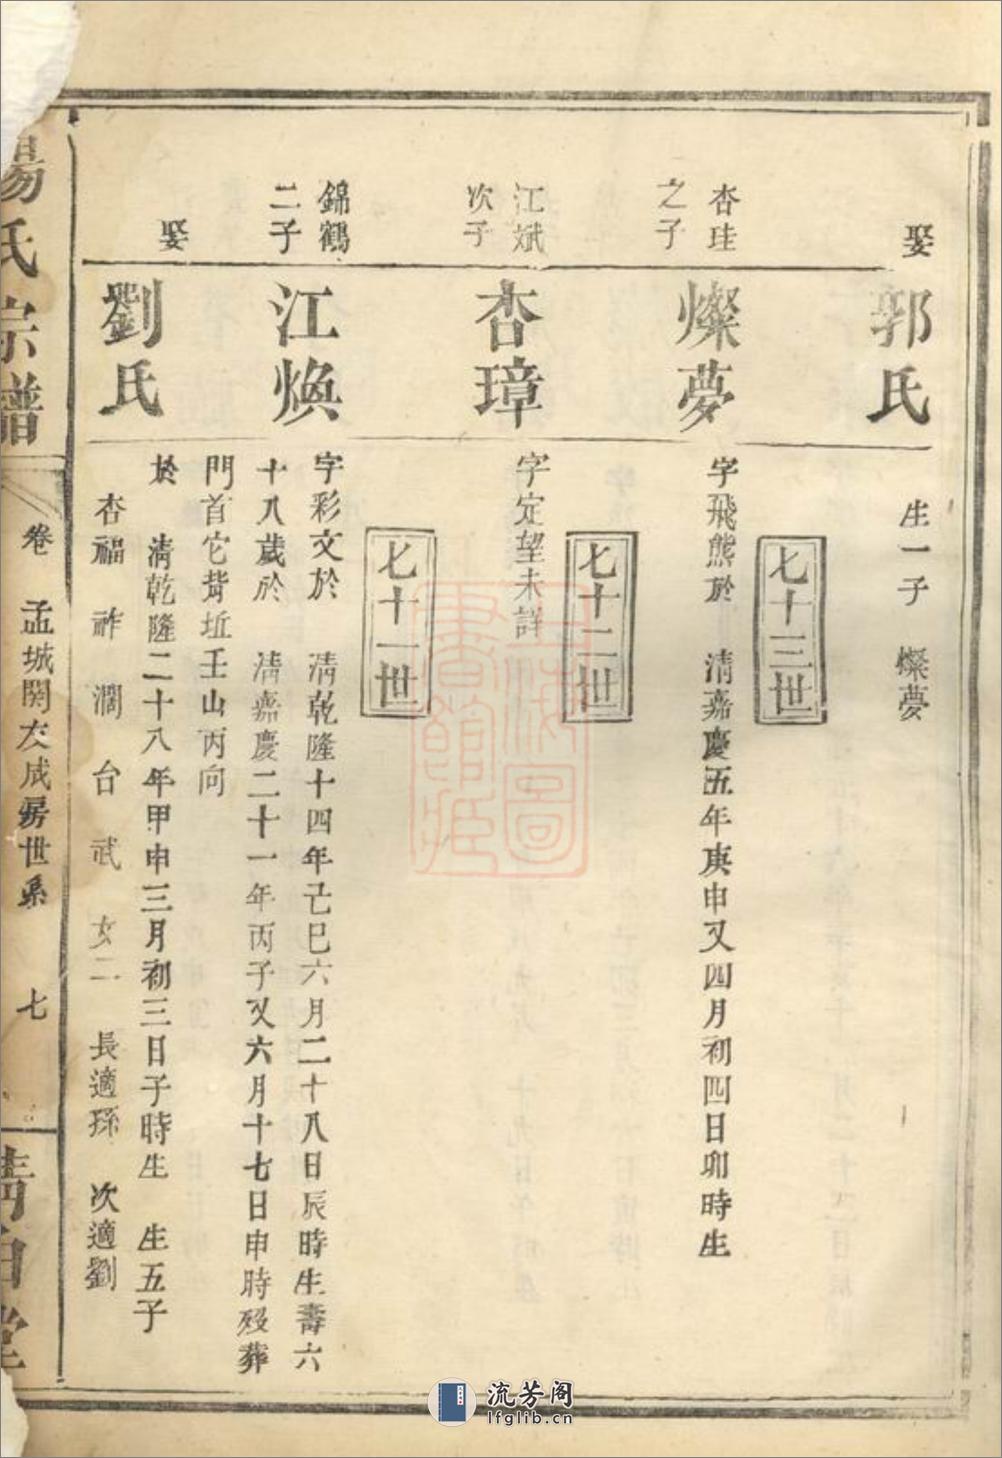 娶
郭氏
生一子　燦夢
七十三世
杏珪
之子
燦夢
字飛熊於　清嘉慶五年庚申又四月初四日卯時生
七十二世
江斌
次子
杏璋
字定望未詳
七十一世
錦鶴
二子
江煥
字彩文於　清乾隆十四年己巳六月二十八日辰時生壽六
十八歲於　清嘉慶二十一年丙子又六月十七日申時歿葬
門首它背坵壬山丙向
娶
劉氏
於　清乾隆二十八年甲申三月初三日子時生　生五子
杏福　祚　濶　台　武　女二　長適孫　次適劉
楊氏宗譜
卷　孟城関友成房世系　七
清白堂
流芳阁
lfglib.cn